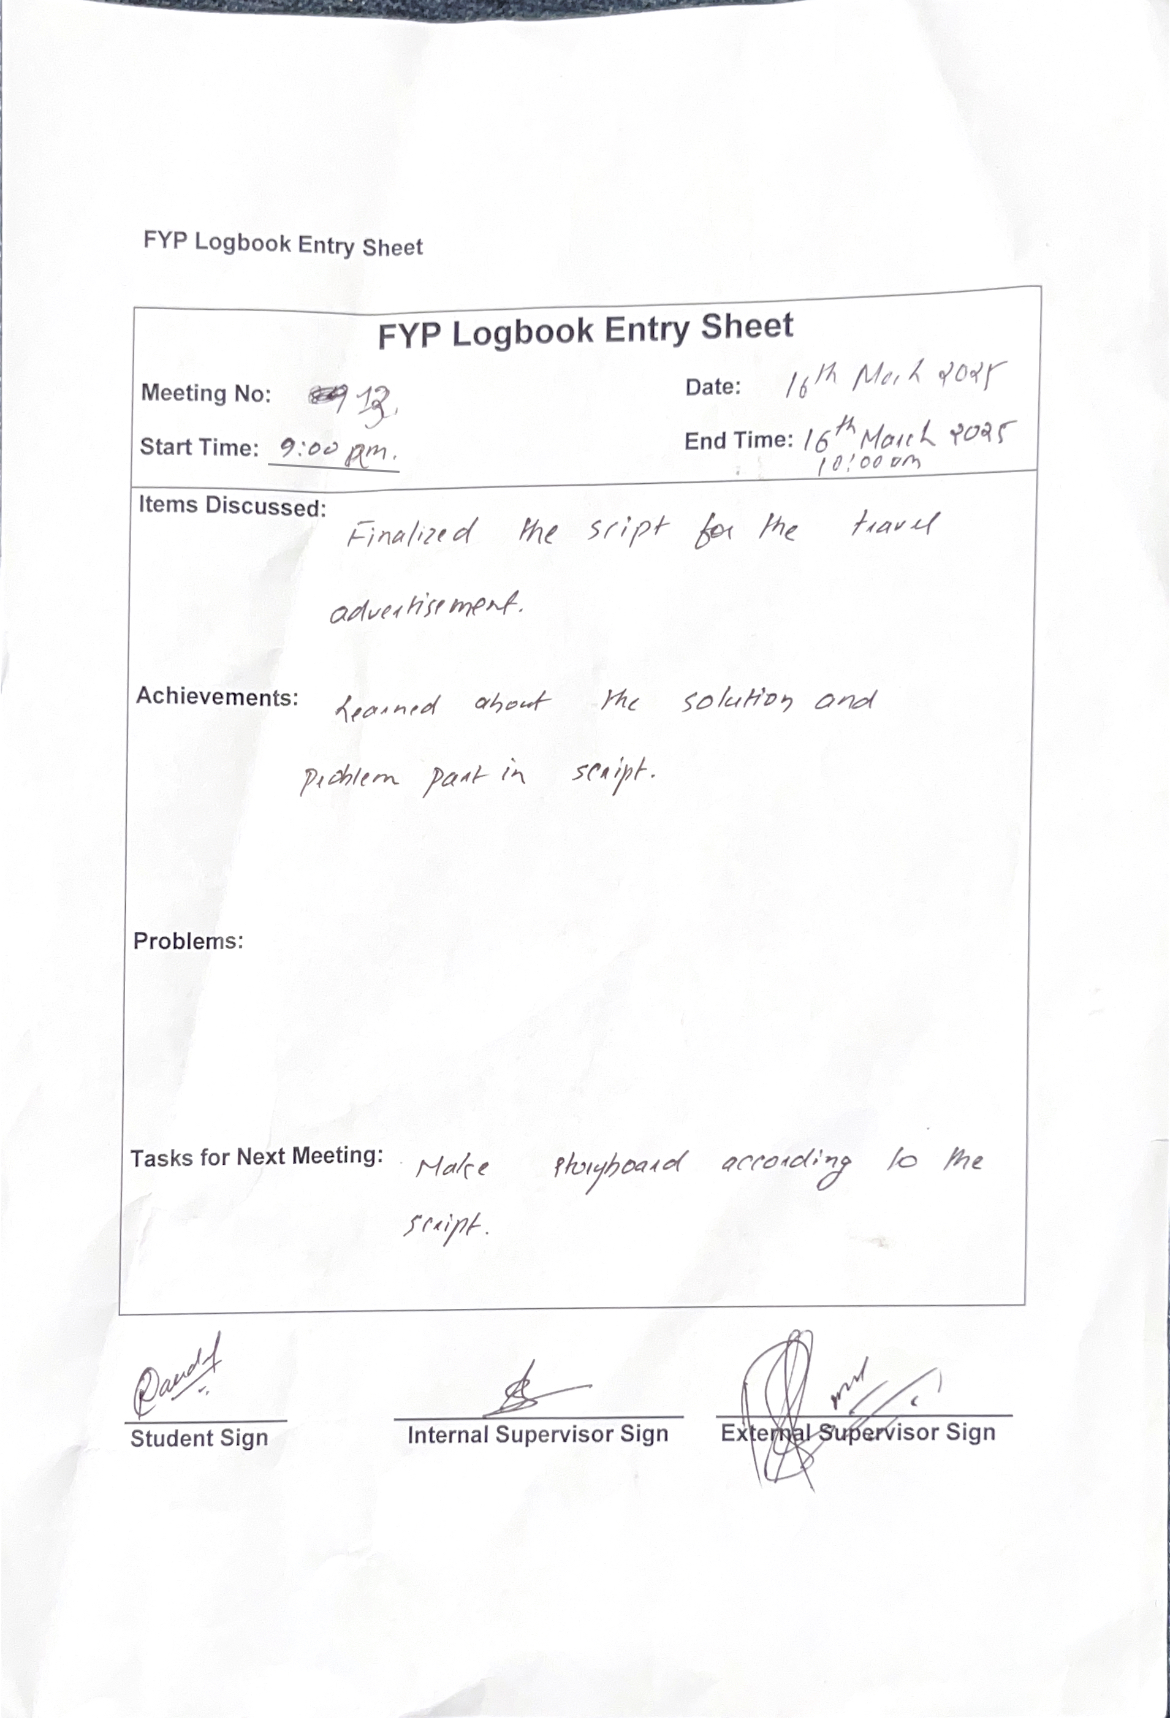 FYP Logbook Entry Sheet
FYP Logbook Entry Sheet
Meeting No: 13.
Date: 16th March 2025
Start Time: 9:00 pm.
End Time: 16th March 2025
10:00 pm
Items Discussed:
Finalized the sript for the travel
advertisement.
Achievements: Learned about the solution and
problem part in script.
Problems:
Tasks for Next Meeting: Make storyboard according to the
script.
Student Sign
Internal Supervisor Sign
External Supervisor Sign